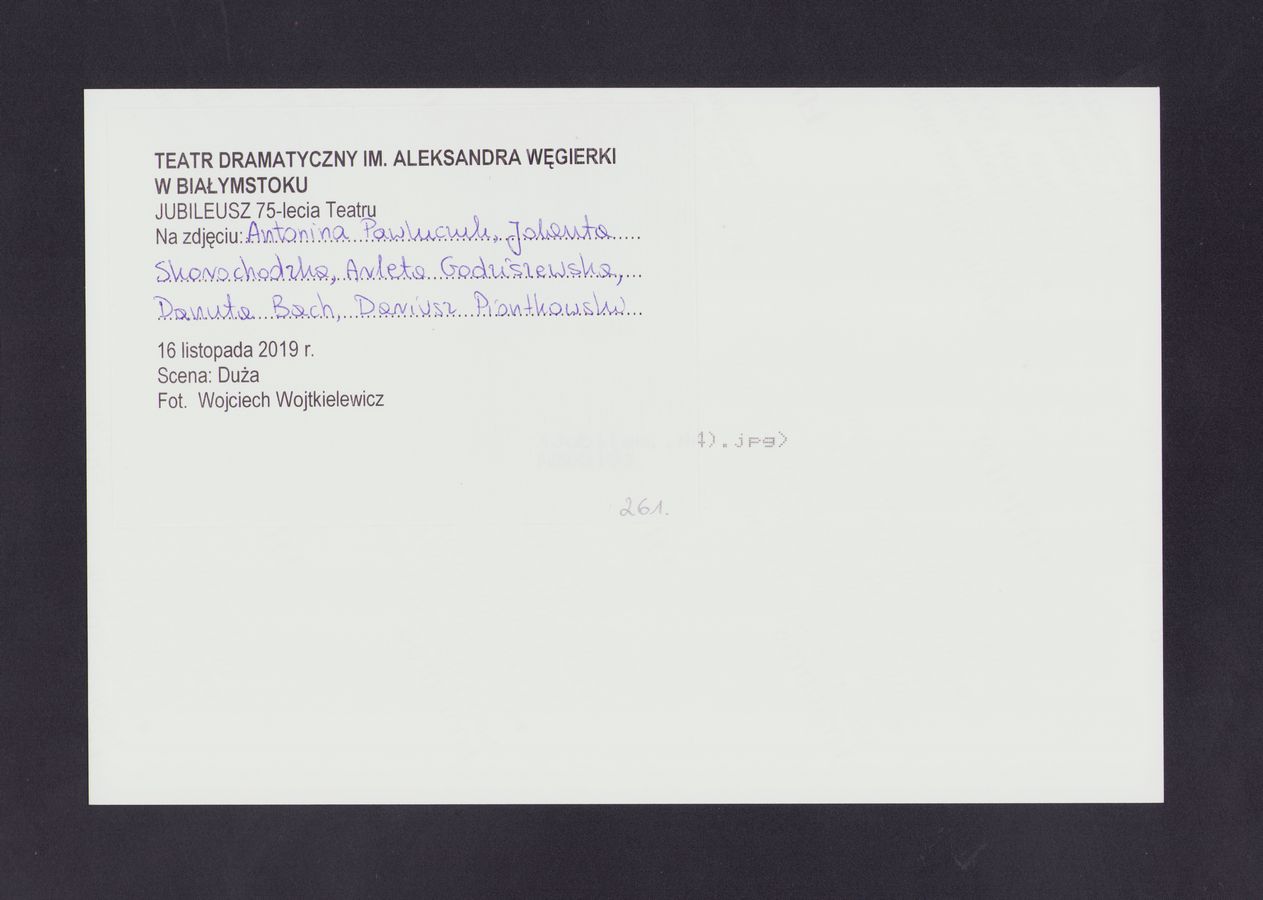 TEATR DRAMATYCZNY IM. ALEKSANDRA WĘGIERKI
W BIAŁYMSTOKU
JUBILEUSZ 75-lecia Teatru
Na zdjęciu: Antonina Pawluczuk, Jolanta
Skorochodzka, Arleta Godziszewska,
Danuta Bach, Dariusz Piontkowski
16 listopada 2019 r.
Scena: Duża
Fot. Wojciech Wojtkielewicz
4).jpg)
261.